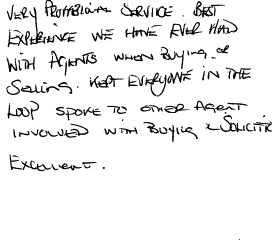 VERY PROFESSIONAL SERVICE. BEST
EXPERIENCE WE HAVE EVER HAD
WITH AGENTS WHEN BUYING or
SELLING. KEPT EVERYONE IN THE
LOOP SPOKE TO OTHER AGENT
INVOLVED WITH BUYING &
EXCELLENT.